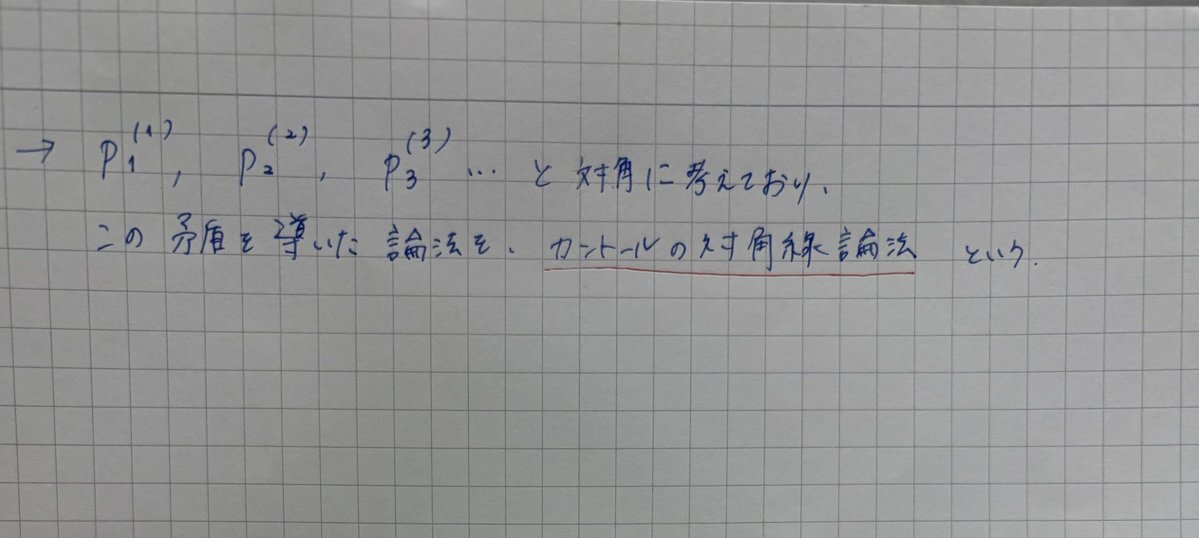 → P₁⁽¹⁾, P₂⁽²⁾, P₃⁽³⁾ … と対角に考えており、
この矛盾を導いた論法を、カントールの対角線論法 という.